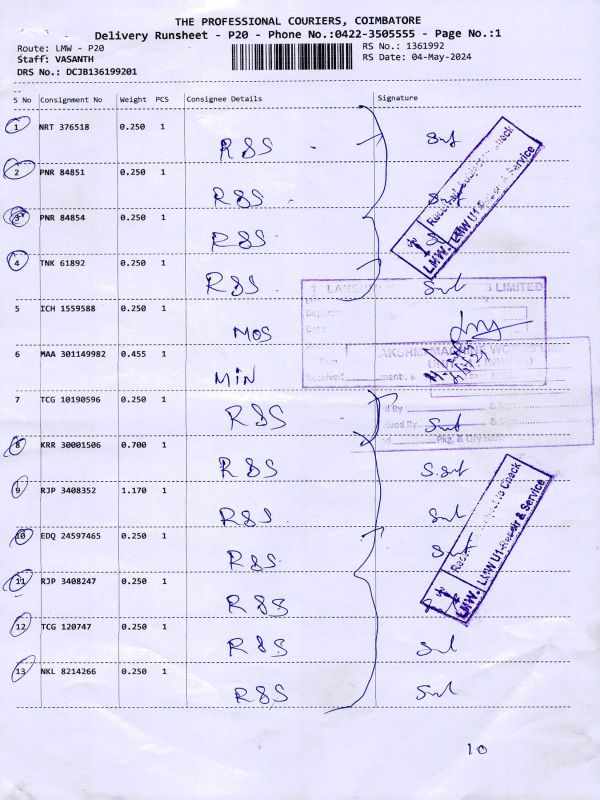 THE PROFESSIONAL COURIERS, COIMBATORE
Delivery Runsheet - P20 - Phone No.:0422-3505555 - Page No.:1
Route: LMW - P20
RS No.: 1361992
Staff: VASANTH
RS Date: 04-May-2024
DRS No.: DCJB136199201
S No Consignment No Weight PCS Consignee Details Signature
1 NRT 376518 0.250 1 R&S
2 PNR 84851 0.250 1 R&S
3 PNR 84854 0.250 1 R&S
4 TNK 61892 0.250 1 R&S
5 ICH 1559588 0.250 1 MOS
6 MAA 301149982 0.455 1 MIN
7 TCG 10190596 0.250 1 R&S
8 KRR 30001506 0.700 1 R&S
9 RJP 3408352 1.170 1 R&S
10 EDQ 24597465 0.250 1 R&S
11 RJP 3408247 0.250 1 R&S
12 TCG 120747 0.250 1 R&S
13 NKL 8214266 0.250 1 R&S
LMW.
LMW U1-Repair & Service
to Check
LIMITED
LAKSHMI MACHINE WO
LMW.
LMW U1-Repair & Service
to Check
10